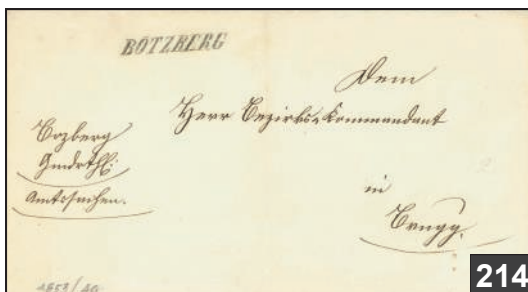 BÖTZBERG
Dem
Herr Bezirks-Kommandant
Bozberg
Gmdrthl:
Amtssachen.
in
Brugg.
1853/40
214